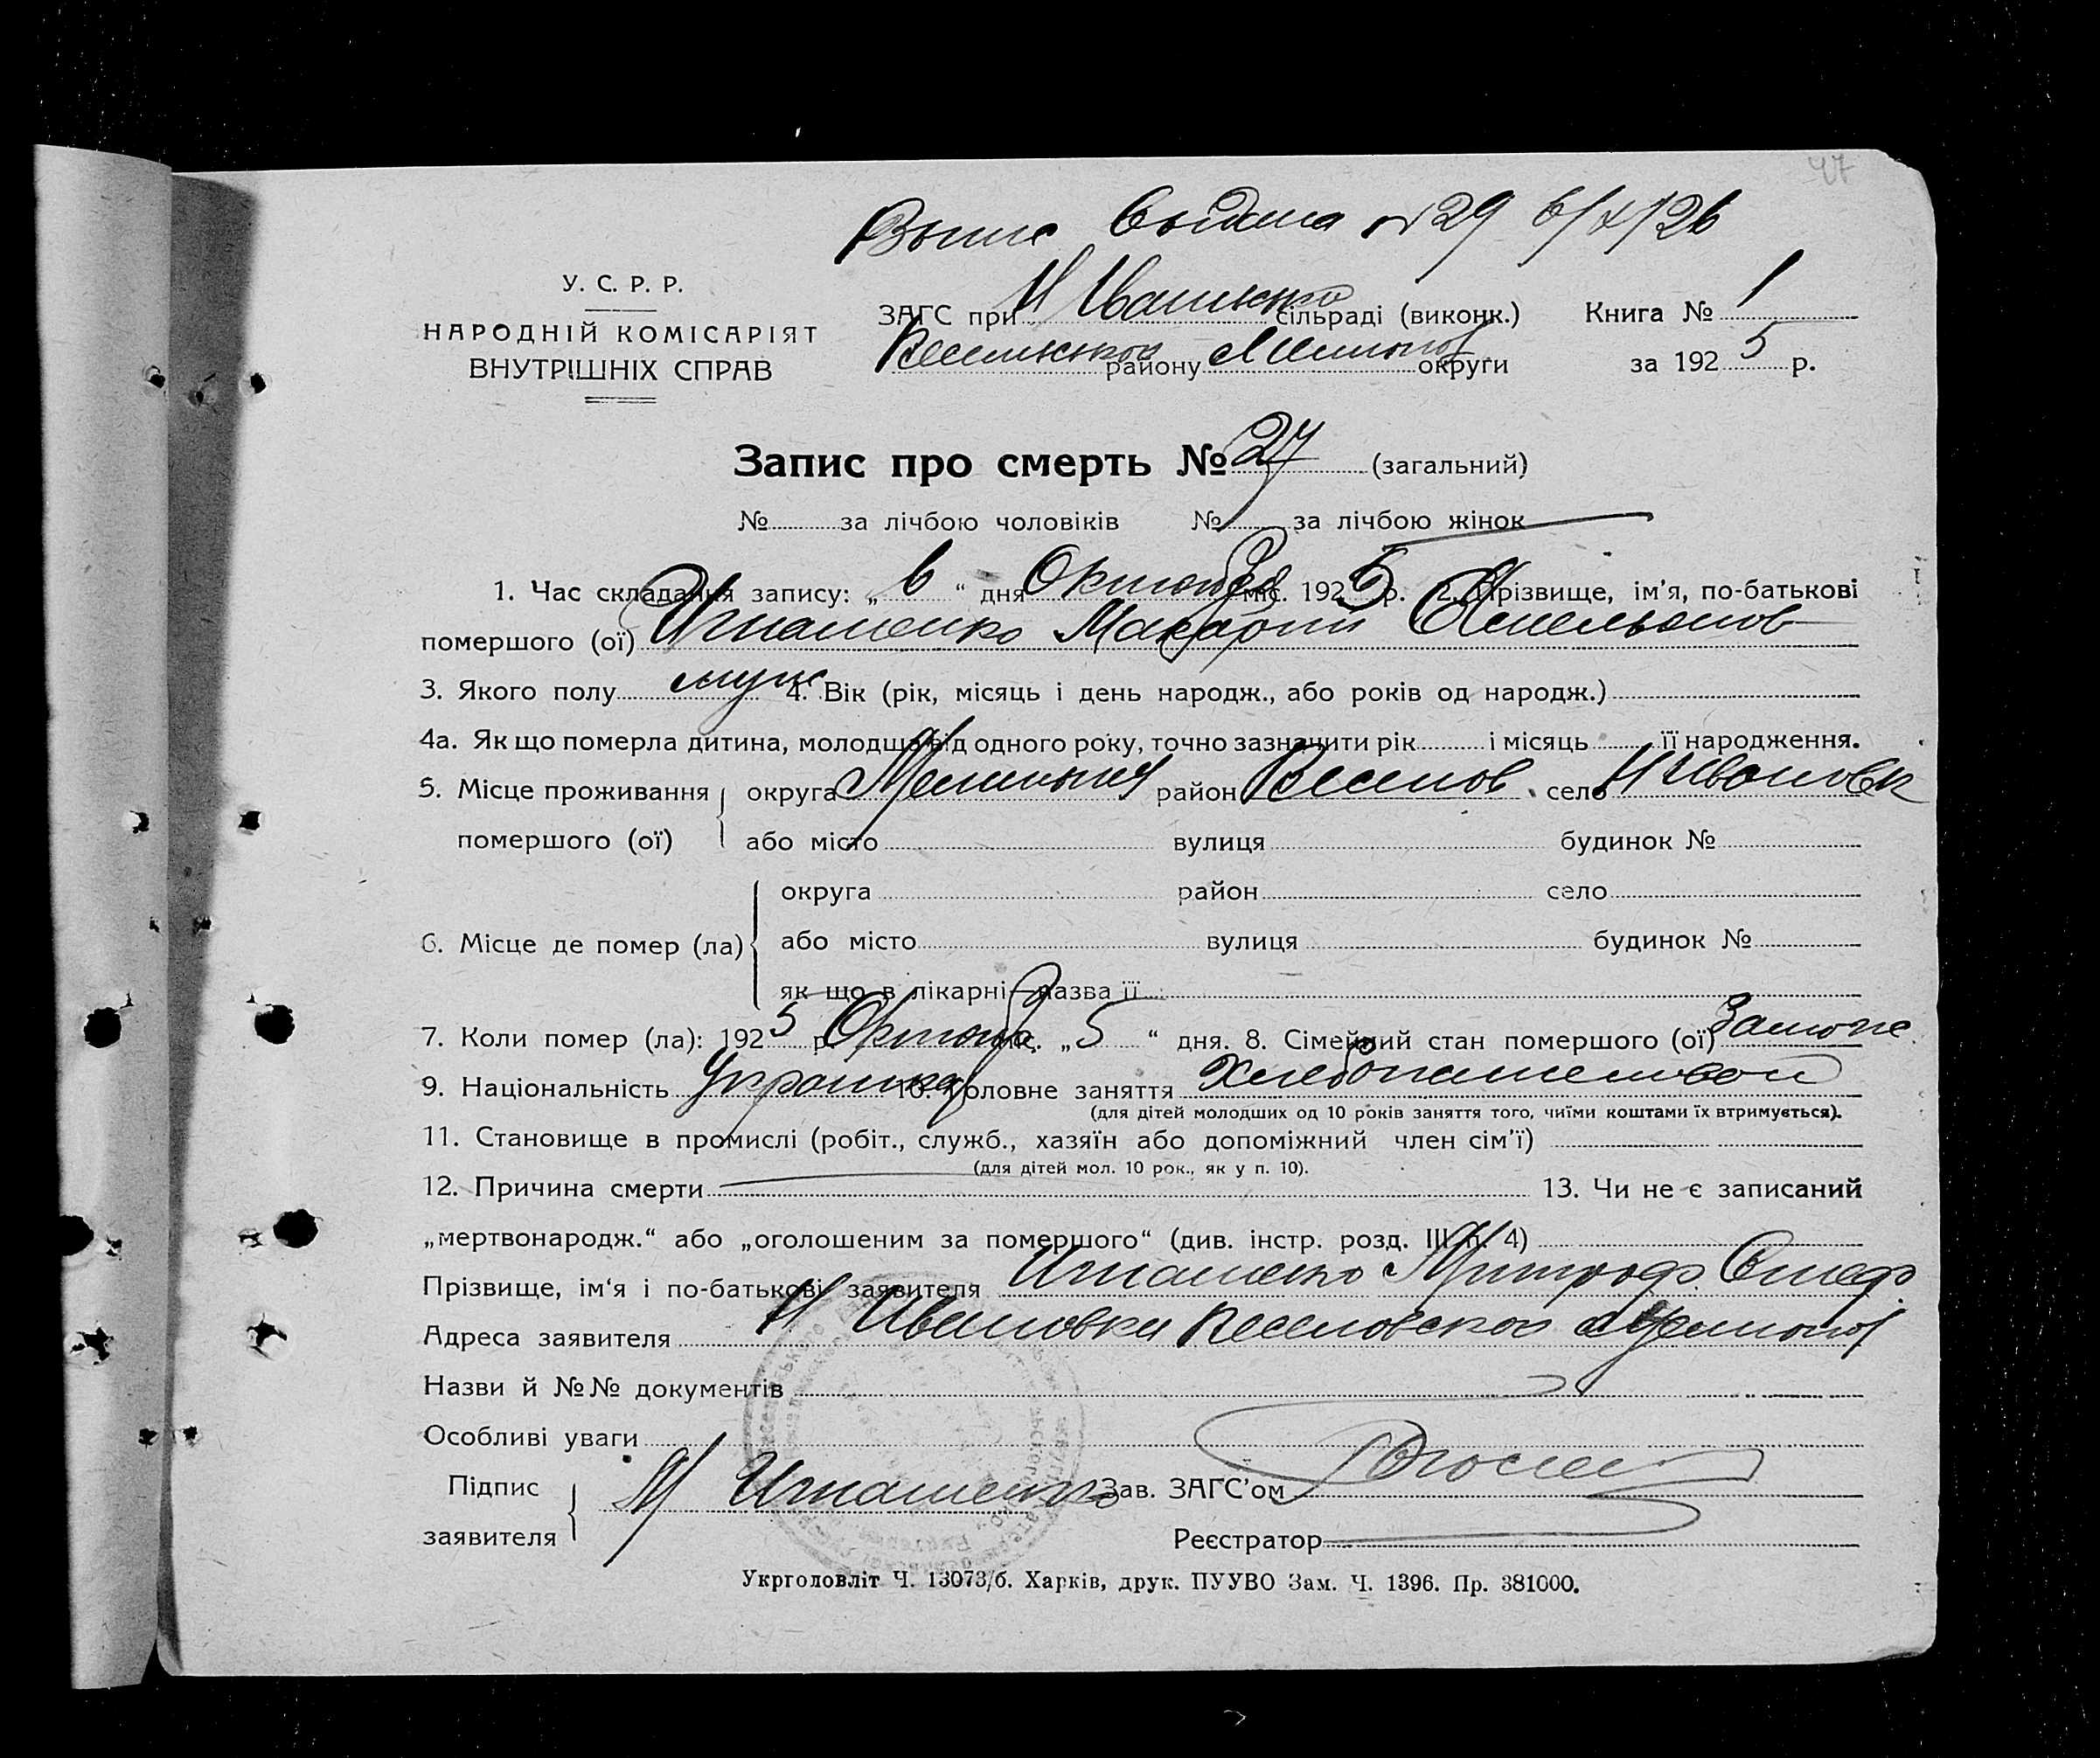 47
Выпис выдана №29 6/X/26
У. С. Р. Р.
НАРОДНІЙ КОМІСАРІЯТ
ВНУТРІШНІХ СПРАВ
ЗАГС при Н сільраді (виконк.) Книга № 1
району округи за 1925 р.
Запис про смерть № 27 (загальний)
№ за лічбою чоловіків № за лічбою жінок
1. Час складання запису: „6“ дня Октября міс. 1925 р. 2. Прізвище, ім'я, по-батькові
помершого (ої) Игнатенко Макарий Емельянов
3. Якого полу муж 4. Вік (рік, місяць і день народж., або років од народж.)
4а. Як що померла дитина, молодща від одного року, точно зазначити рік і місяць її народження.
5. Місце проживання округа район Веселов село Н Ивановк
помершого (ої) або місто вулиця будинок №
округа район село
6. Місце де помер (ла) або місто вулиця будинок №
як що в лікарні—назва її
7. Коли помер (ла): 1925 р. Октяб міс. „5“ дня. 8. Сімейний стан помершого (ої)
9. Національність 10. Головне заняття
(для дітей молодших од 10 років заняття того, чиїми коштами їх втримується).
11. Становище в промислі (робіт., служб., хазяїн або допоміжний член сім'ї)
(для дітей мол. 10 рок., як у п. 10).
12. Причина смерти 13. Чи не є записаний
„мертвонародж.“ або „оголошеним за помершого“ (див. інстр. розд. III п. 4)
Прізвище, ім'я і по-батькові заявителя Игнатенко Митроф.
Адреса заявителя Н Ивановка Веселовского
Назви й №№ документів
Особливі уваги
Підпис
заявителя М Игнатенко Зав. ЗАГС'ом
Реєстратор
Укрголовліт Ч. 13073/б. Харків, друк. ПУУВО Зам. Ч. 1396. Пр. 381000.